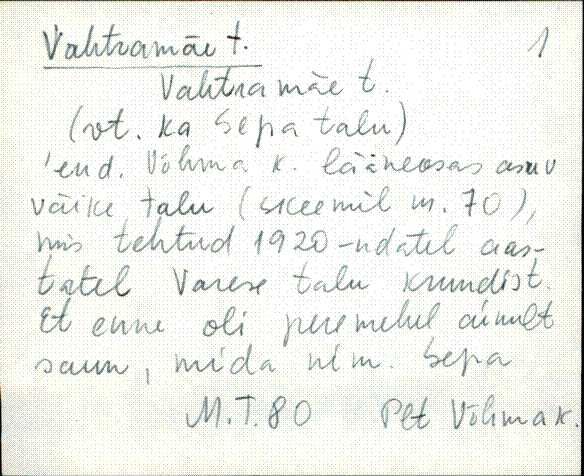 Vahtramäe t. 1
Vahtramäe t.
(vt. ka Sepa talu)
'end. Võhma k. lääneosas asuv
väike talu (skeemil nr. 70),
mis tehtud 1920-ndatel aas-
tatel Varese talu krundist.
Et enne oli peremehel ainult
saun, mida nim. Sepa
M.T.80 Plt Võhma k.